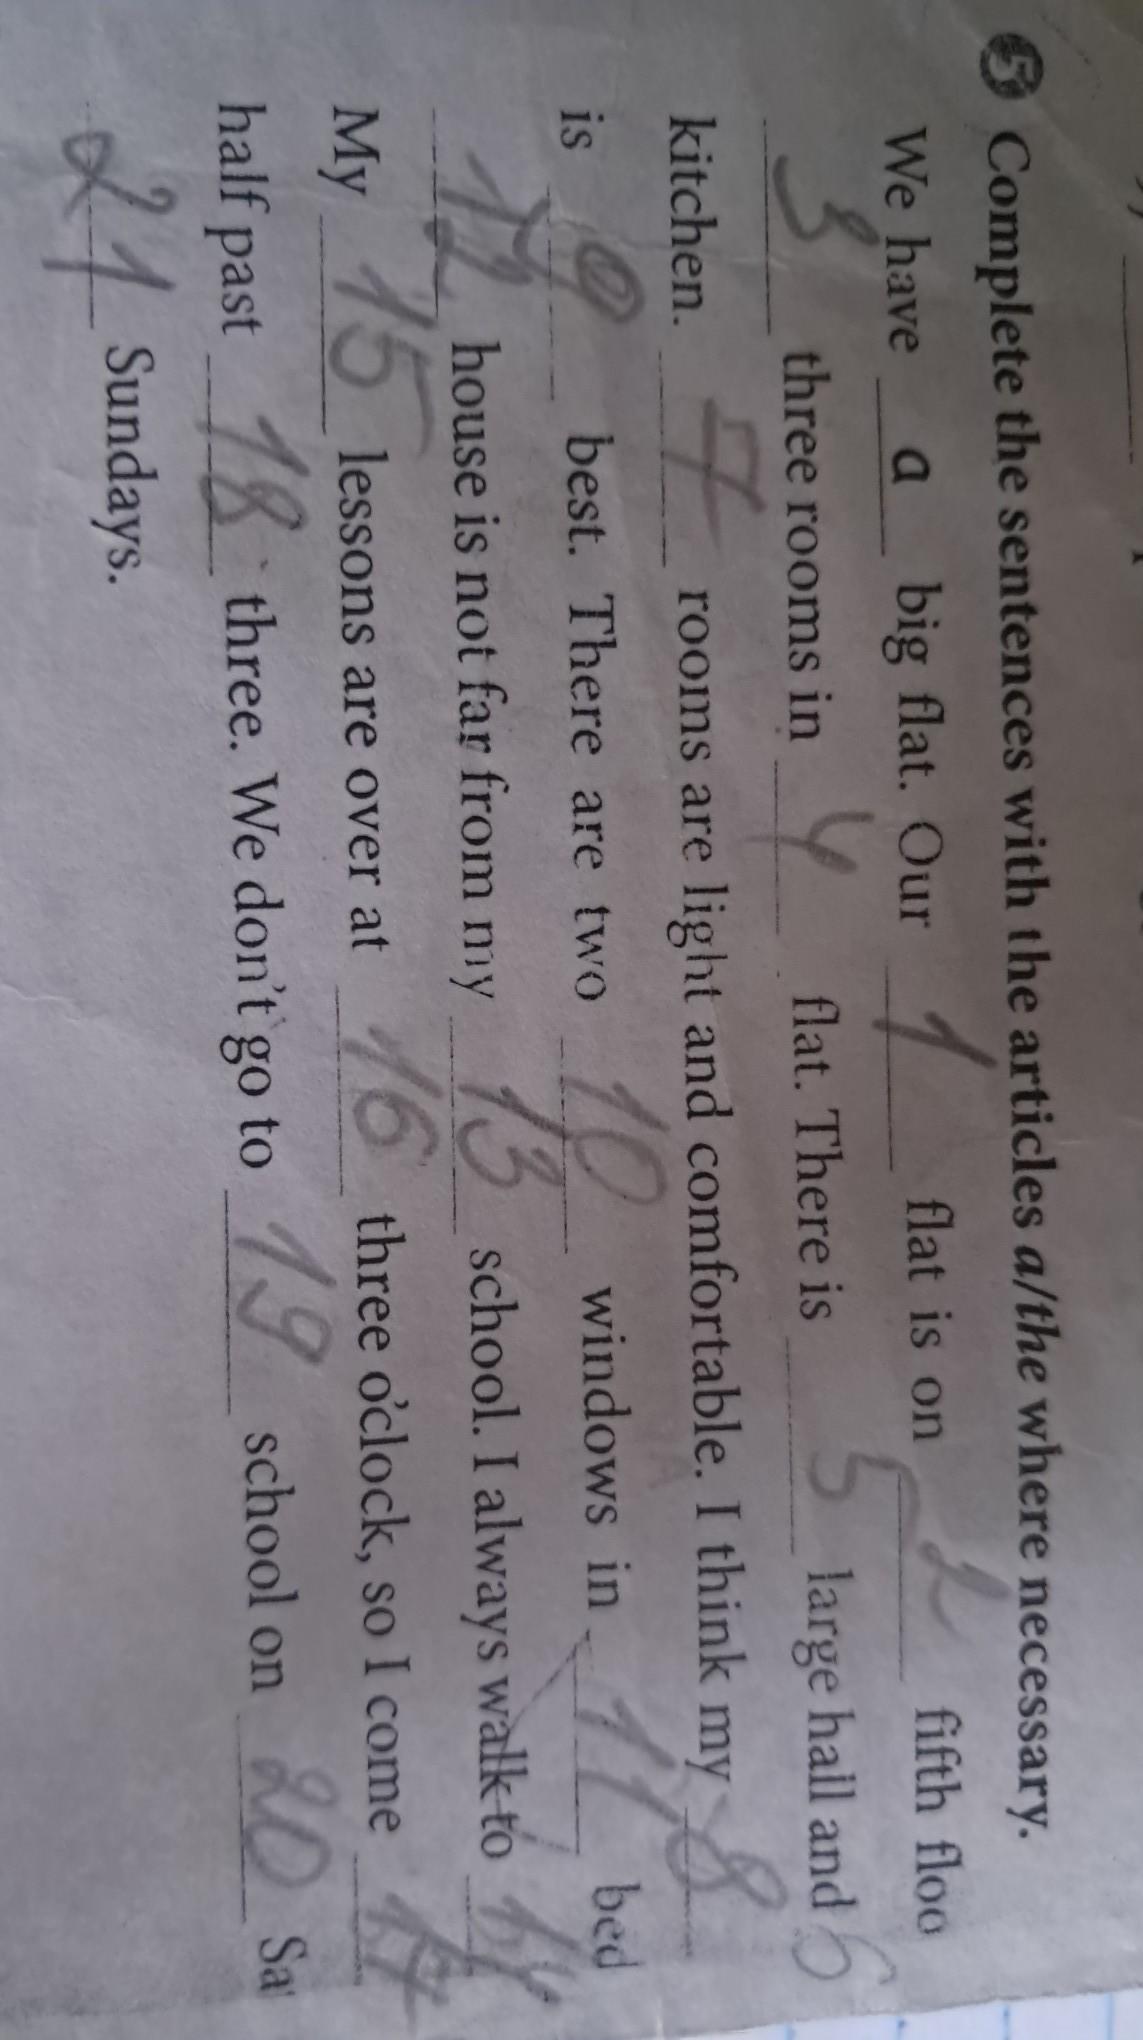 5 Complete the sentences with the articles a/the where necessary.
We have a big flat. Our 1 flat is on 2 fifth floo
3 three rooms in 4 flat. There is 5 large hall and 6
kitchen. 7 rooms are light and comfortable. I think my 8
is 9 best. There are two 10 windows in 11 bed
12 house is not far from my 13 school. I always walk to 14
My 15 lessons are over at 16 three o'clock, so I come 17
half past 18 three. We don't go to 19 school on 20 Sa
21 Sundays.